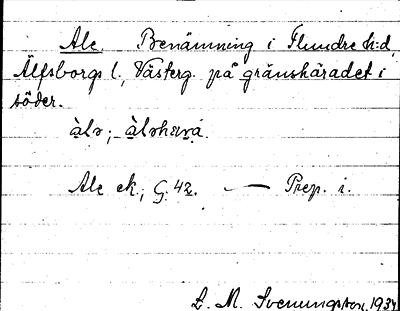 Ale. Benämning i Flundre h:d,
Älfsborgs l., Västerg. på gränshäradet i
söder.
àlə; àləhæra
Ale ek., G. 42. — Prep. i.
L. M. Svenungsson, 1934